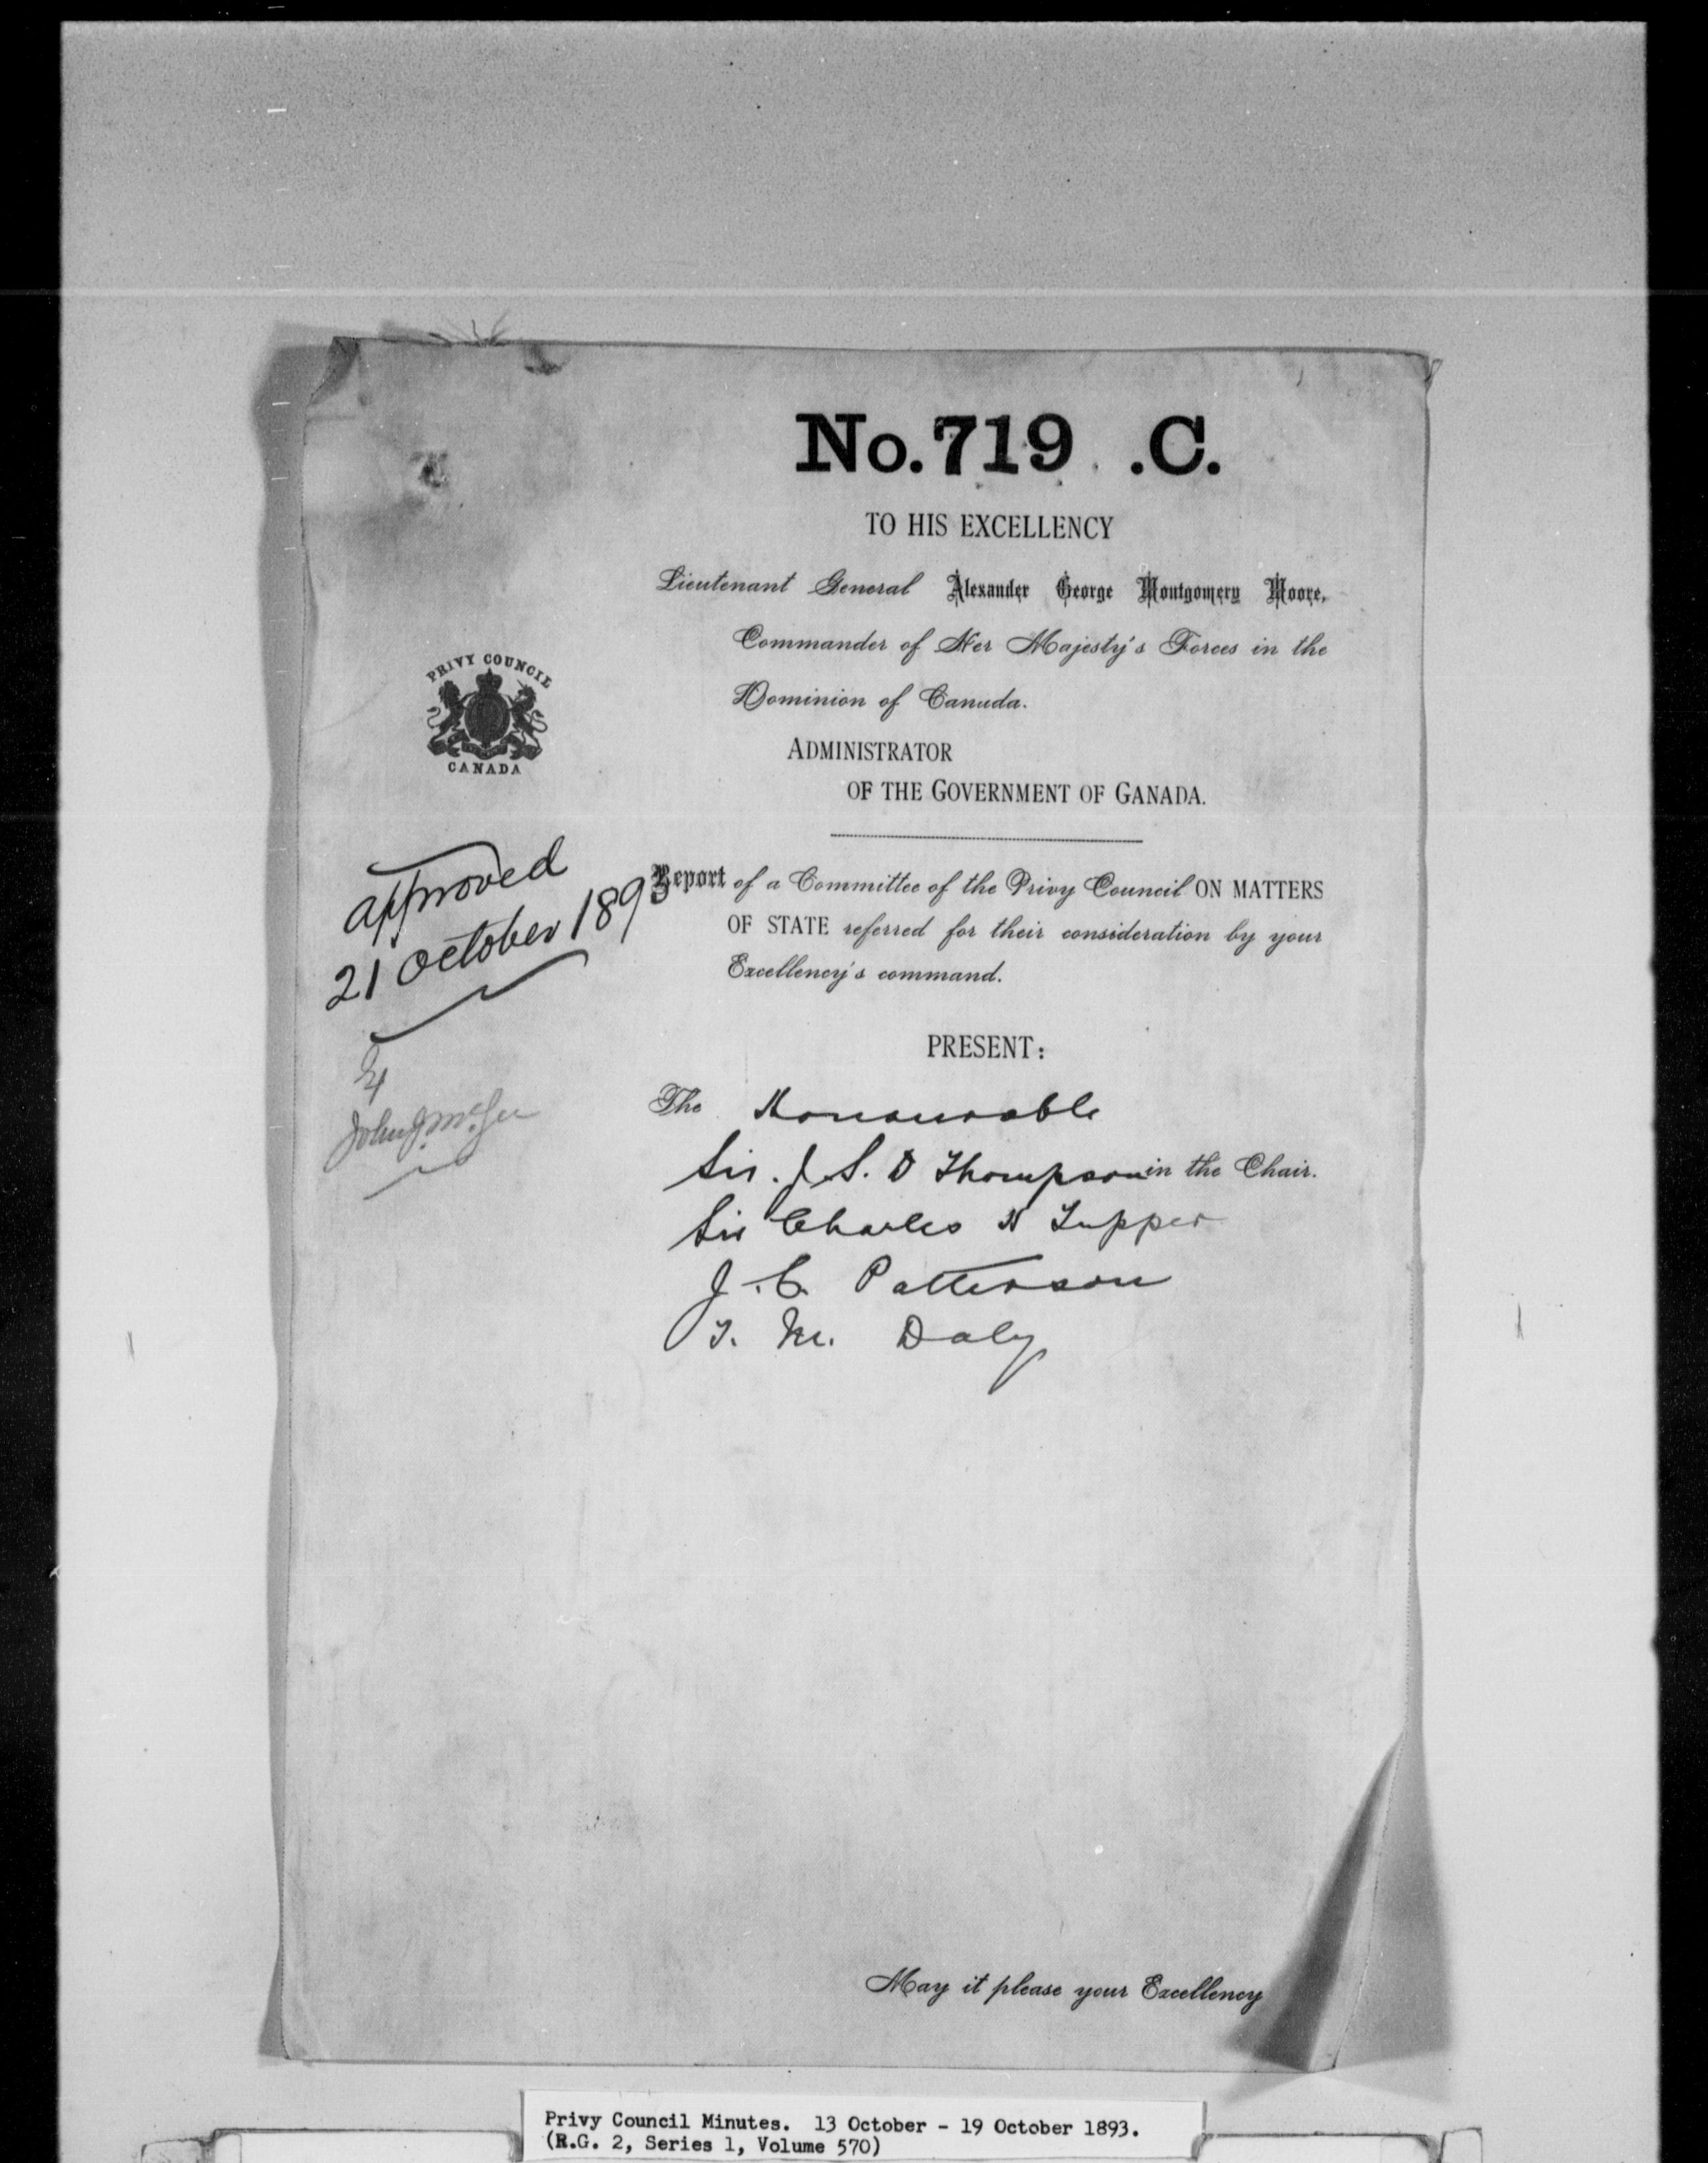 No. 719 .C.
TO HIS EXCELLENCY
Lieutenant General Alexander George Montgomery Moore,
Commander of Her Majesty's Forces in the
Dominion of Canada.
ADMINISTRATOR
OF THE GOVERNMENT OF CANADA.
PRIVY COUNCIL
CANADA
approved
21 October 1893
John J. McGee
Report of a Committee of the Privy Council ON MATTERS
OF STATE referred for their consideration by your
Excellency's command.
PRESENT:
The Honourable
Sir. J. S. D Thompson in the Chair.
Sir Charles H Tupper
J. C. Patterson
T. M. Daly
May it please your Excellency
Privy Council Minutes. 13 October - 19 October 1893.
(R.G. 2, Series 1, Volume 570)